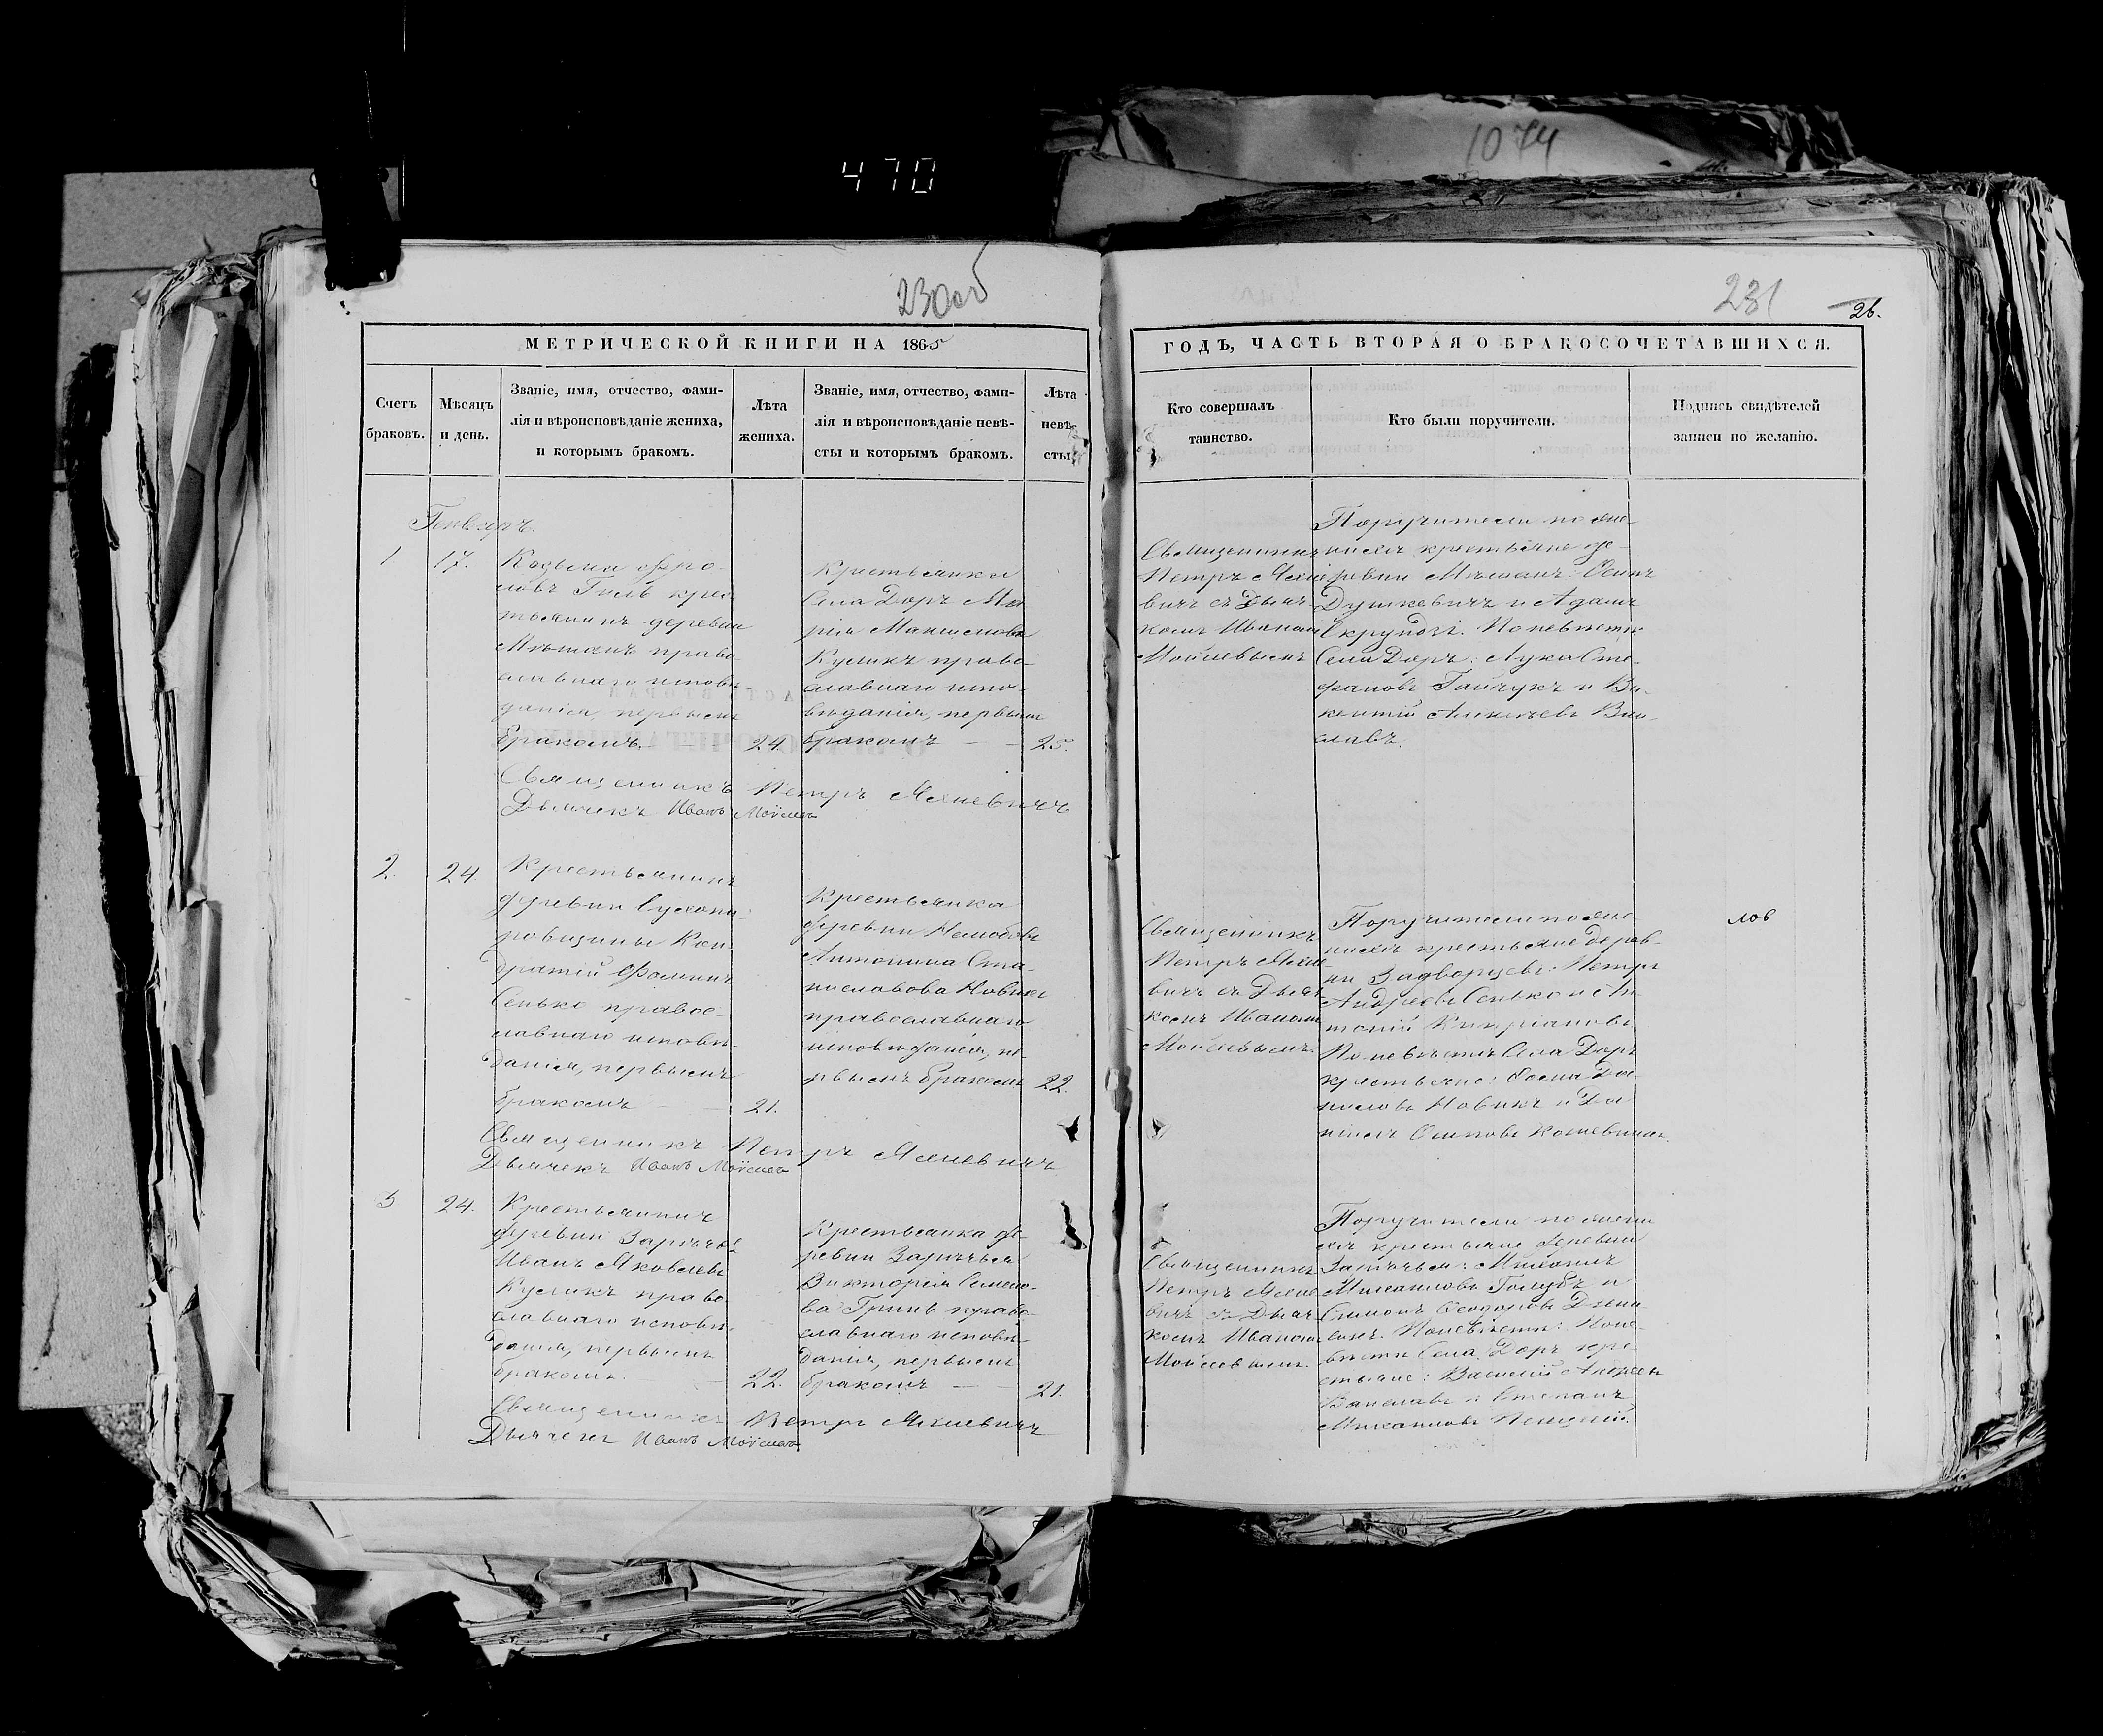 1074
470
230 об
231
26.
МЕТРИЧЕСКОЙ КНИГИ НА 1865
ГОДЪ, ЧАСТЬ ВТОРАЯ О БРАКОСОЧЕТАВШИХСЯ.
Счетъ
браковъ.
Мѣсяцъ
и день.
Званіе, имя, отчество, фами-
лія и вѣроисповѣданіе жениха,
и которымъ бракомъ.
Лѣта
жениха.
Званіе, имя, отчество, фами-
лія и вѣроисповѣданіе невѣ-
сты и которымъ бракомъ.
Лѣта
невѣ-
сты
Кто совершалъ
таинство.
Кто были поручители.
Подпись свидѣтелей
записи по желанію.
Генварь.
1
17.
Козьма Фро-
ловъ Гиль крес
тьянинъ деревни
Мѣшанъ право
славнаго исповѣ
данія, первымъ
бракомъ
24.
Крестьянка
Села Доръ Ма
рія
Куликъ право-
славнаго испо-
вѣданія, первымъ
бракомъ
25.
Священникъ
Петръ
вичъ съ Дьяч-
комъ Иваномъ
Моисеевымъ
Поручители по же-
нихѣ крестьяне де-
ревни Мѣшанъ: Осипъ
Душкевичъ и Адамъ
По невѣстѣ
Села Доръ: Лука Сте-
фановъ Гайчукъ и Ви-
кентій
Священникъ Петръ
Дьячекъ Иванъ Моисеевъ
2.
24
Крестьянинъ
деревни
Кон
дратій Фоминъ
Сенько правос-
лавнаго исповѣ-
данія, первымъ
бракомъ
21.
Крестьянка
деревни
Антонина Ста-
ниславова Новикъ
православнаго
исповѣданія, пе-
рвымъ бракомъ
22.
Священникъ
Петръ
вичъ съ Дьяч-
комъ Иваномъ
Моисеевымъ.
Поручители по же-
нихѣ крестьяне дерев-
ни Задворцевъ: Петръ
Андреевъ Сенько и Ан-
тоній Кипріановъ
По невѣстѣ Села Доръ
крестьяне:
Новикъ и Да
ніилъ Осиповъ
лов
Священникъ Петръ
Дьячекъ Иванъ Моисеевъ
3
24.
Крестьянинъ
деревни Зарѣчья
Иванъ Яковлевъ
Куликъ право
славнаго исповѣ-
данія, первымъ
бракомъ.
22.
Крестьянка де-
ревни Зарѣчья
Викторія Семено-
ва Гринь право-
славнаго исповѣ-
данія, первымъ
бракомъ
21.
Священникъ
Петръ
вичъ съ Дьяч-
комъ Иваномъ
Моисеевымъ.
Поручители по жени
хѣ крестьяне деревни
Зарѣчья: Михаилъ
Михаиловъ Голубъ и
Симонъ Ѳеодоровъ
По не-
вѣстѣ Села Доръ кре
стьяне: Василій Андреевъ
и Степанъ
Михаиловъ
Священникъ Петръ
Дьячекъ Иванъ Моисеевъ